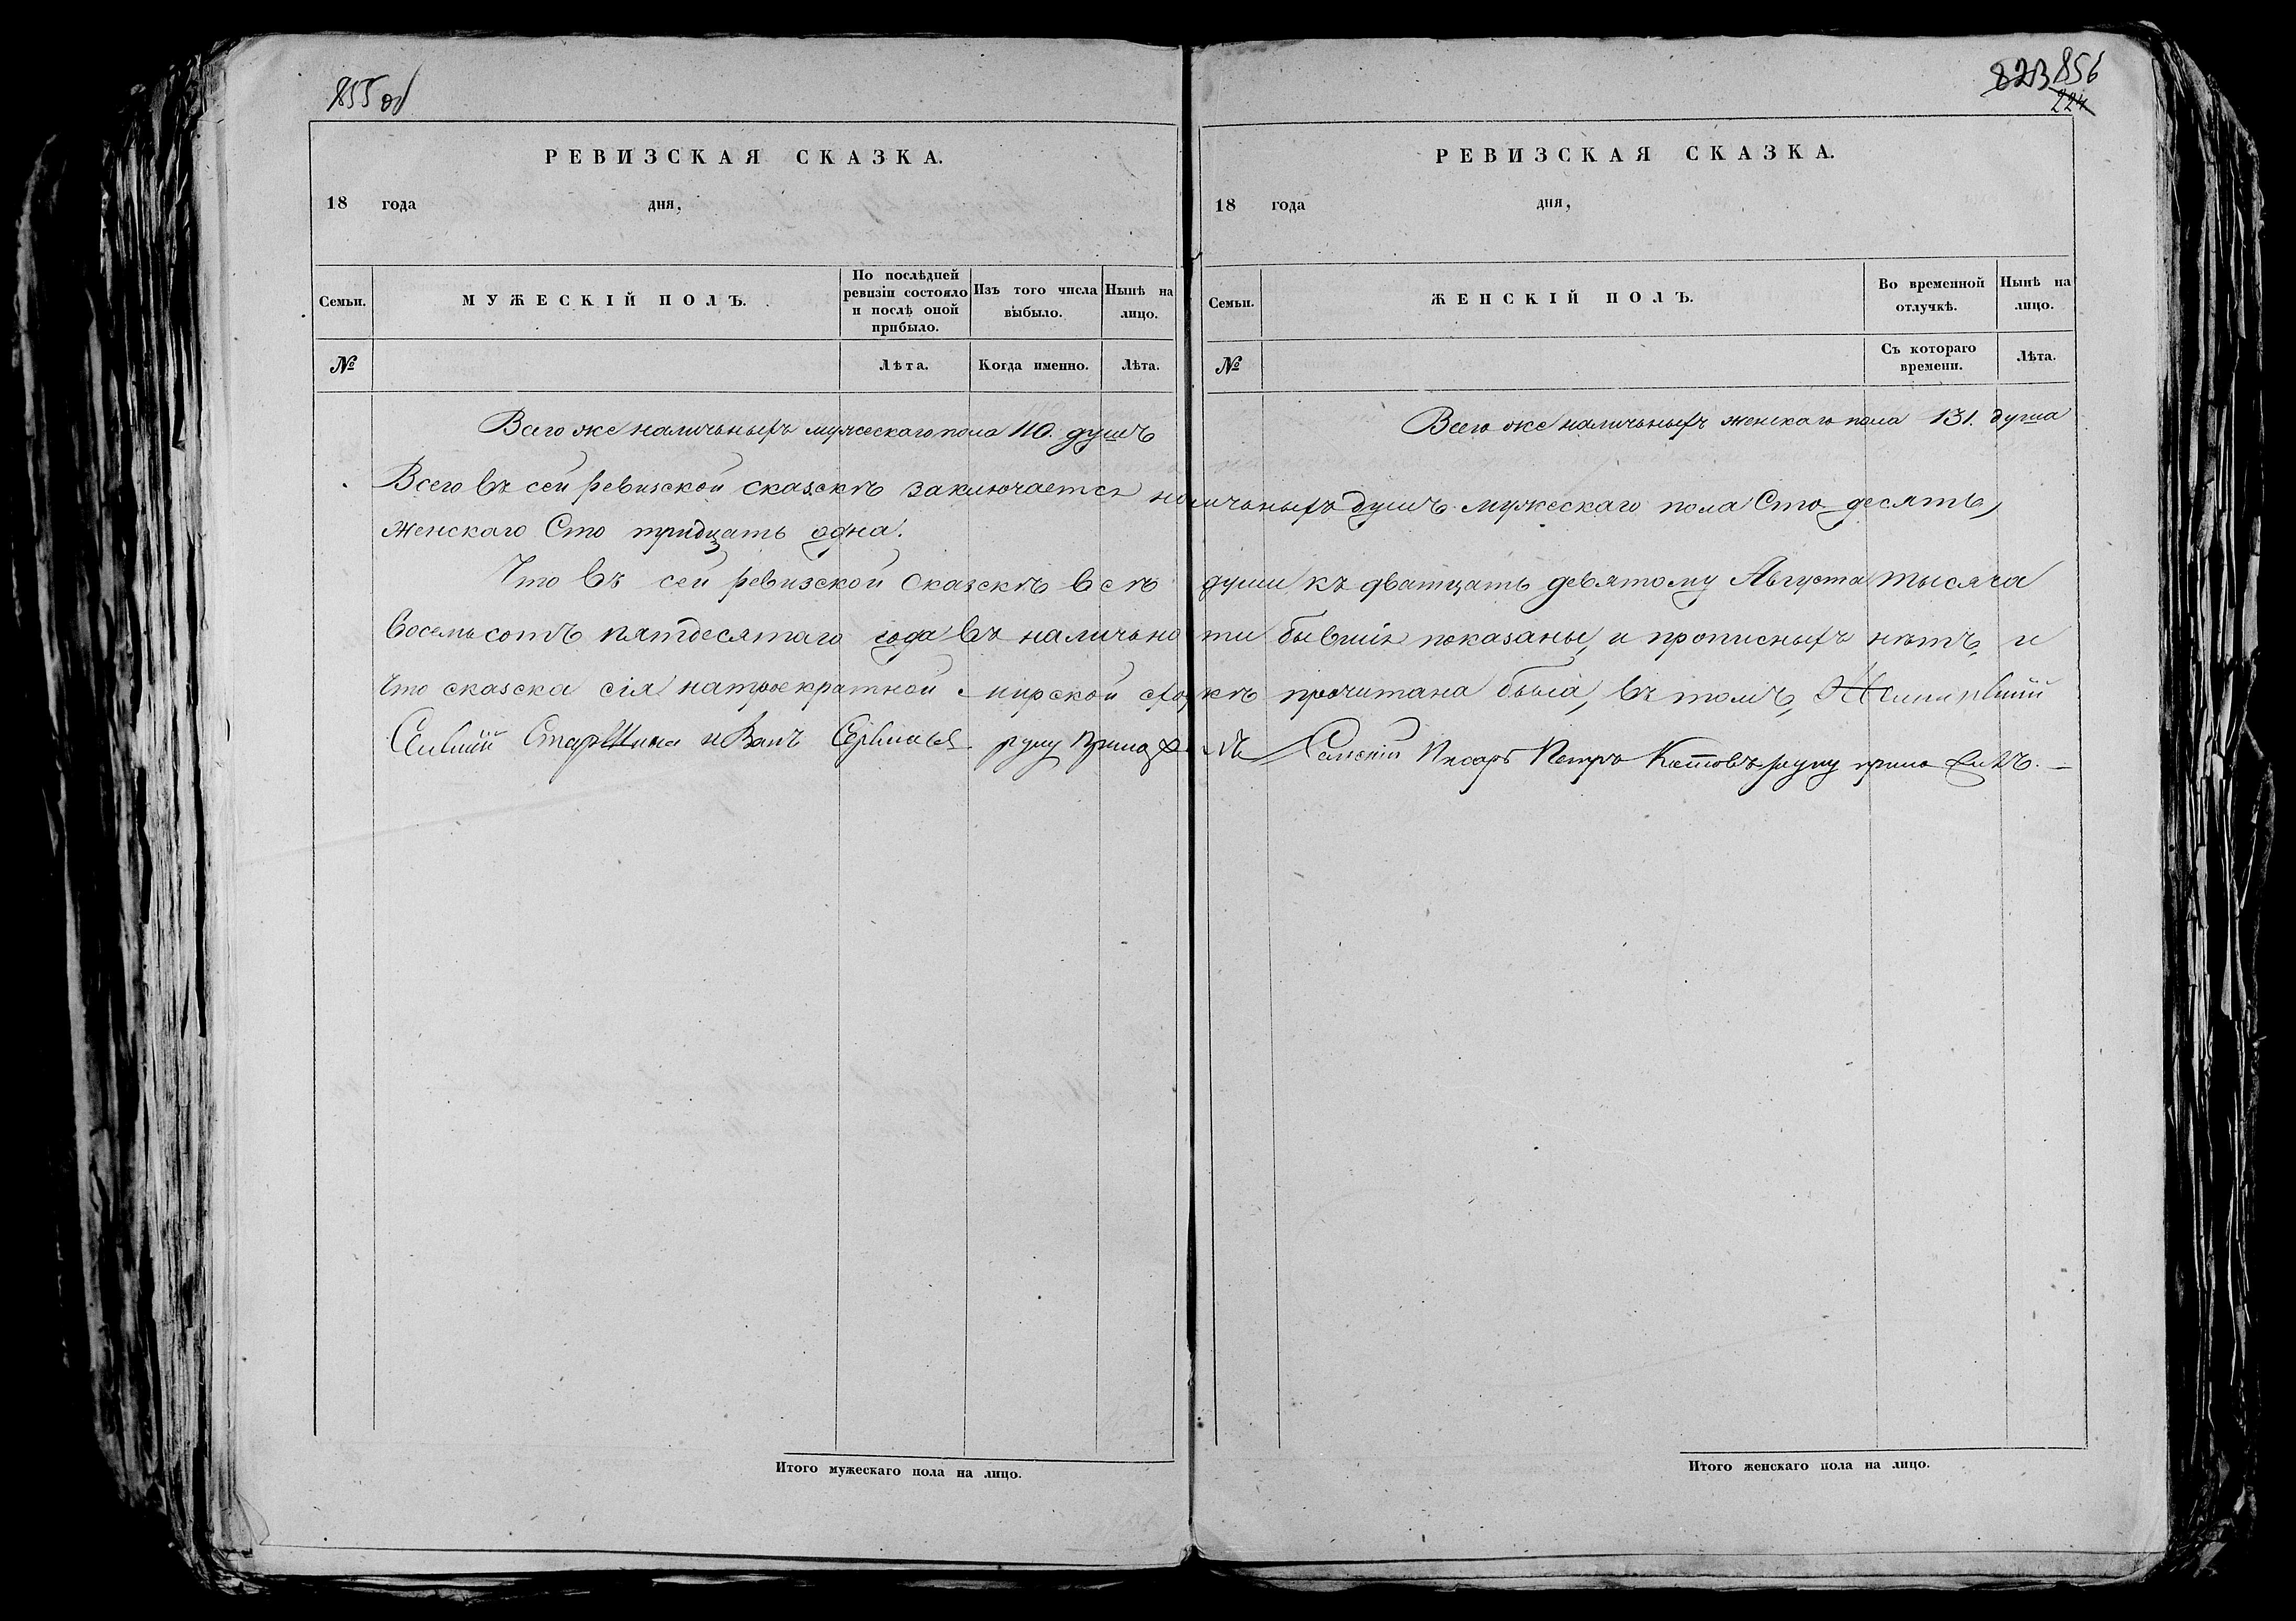 855 об
823 856
224
РЕВИЗСКАЯ СКАЗКА.
18 года дня,
Семьи.
МУЖЕСКІЙ ПОЛЪ.
По послѣдней ревизіи состояло и послѣ оной прибыло.
Изъ того числа выбыло.
Нынѣ на лицо.
№
Лѣта.
Когда именно.
Лѣта.
РЕВИЗСКАЯ СКАЗКА.
18 года дня,
Семьи.
ЖЕНСКІЙ ПОЛЪ.
Во временной отлучкѣ.
Нынѣ на лицо.
№
Съ котораго времени.
Лѣта.
Всего же наличныхъ мужескаго пола 110. душъ
Всего же наличныхъ женскаго пола 131. душа
Всего въ сей ревизской сказскѣ заключается наличныхъ душъ мужескаго пола Сто десять,
женскаго Сто тридцать одна.
Что въ сей ревизской сказскѣ всѣ души къ дватцать девятому Августа тысяча
восемьсотъ пятдесятаго года въ наличности бывшія показаны, и прописныхъ нѣтъ, и
что сказска сія на троекратной мирской сходкѣ прочитана была, въ томъ,
Старшина Иванъ руку приложилъ Сельскій Писарь Петръ руку приложилъ.
Итого мужескаго пола на лицо.
Итого женскаго пола на лицо.